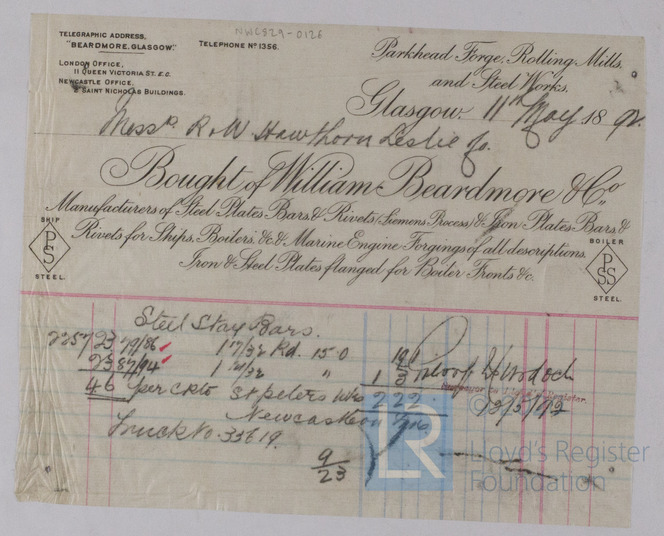 NWC829-0126
TELEGRAPHIC ADDRESS,
"BEARDMORE, GLASGOW."
TELEPHONE No 1356.
LONDON OFFICE,
11 QUEEN VICTORIA ST. E.C.
NEWCASTLE OFFICE,
2 SAINT NICHOLAS BUILDINGS.
Parkhead Forge, Rolling Mills,
and Steel Works,
Glasgow, 11th May 1892.
Messrs R & W Hawthorn Leslie Co.
Bought of William Beardmore & Co.,
Manufacturers of Steel Plates, Bars, & Rivets, (Siemens Process) & Iron Plates, Bars, &
Rivets for Ships, Boilers, &c. & Marine Engine Forgings of all descriptions.
Iron & Steel Plates flanged for Boiler Fronts &c.
SHIP
PS
STEEL.
BOILER
PSS
STEEL.
Steel Stay Bars.
2257 23 79/86 1 17/32 Rd. 15.0
23 87/94 "
46 per ckto St peters Wks 2 2 22
Newcastle on
Truck No. 33619.
9
23
Surveyor to Lloyd's Register.
12/5/92
LR
©
Lloyd's Register
Foundation